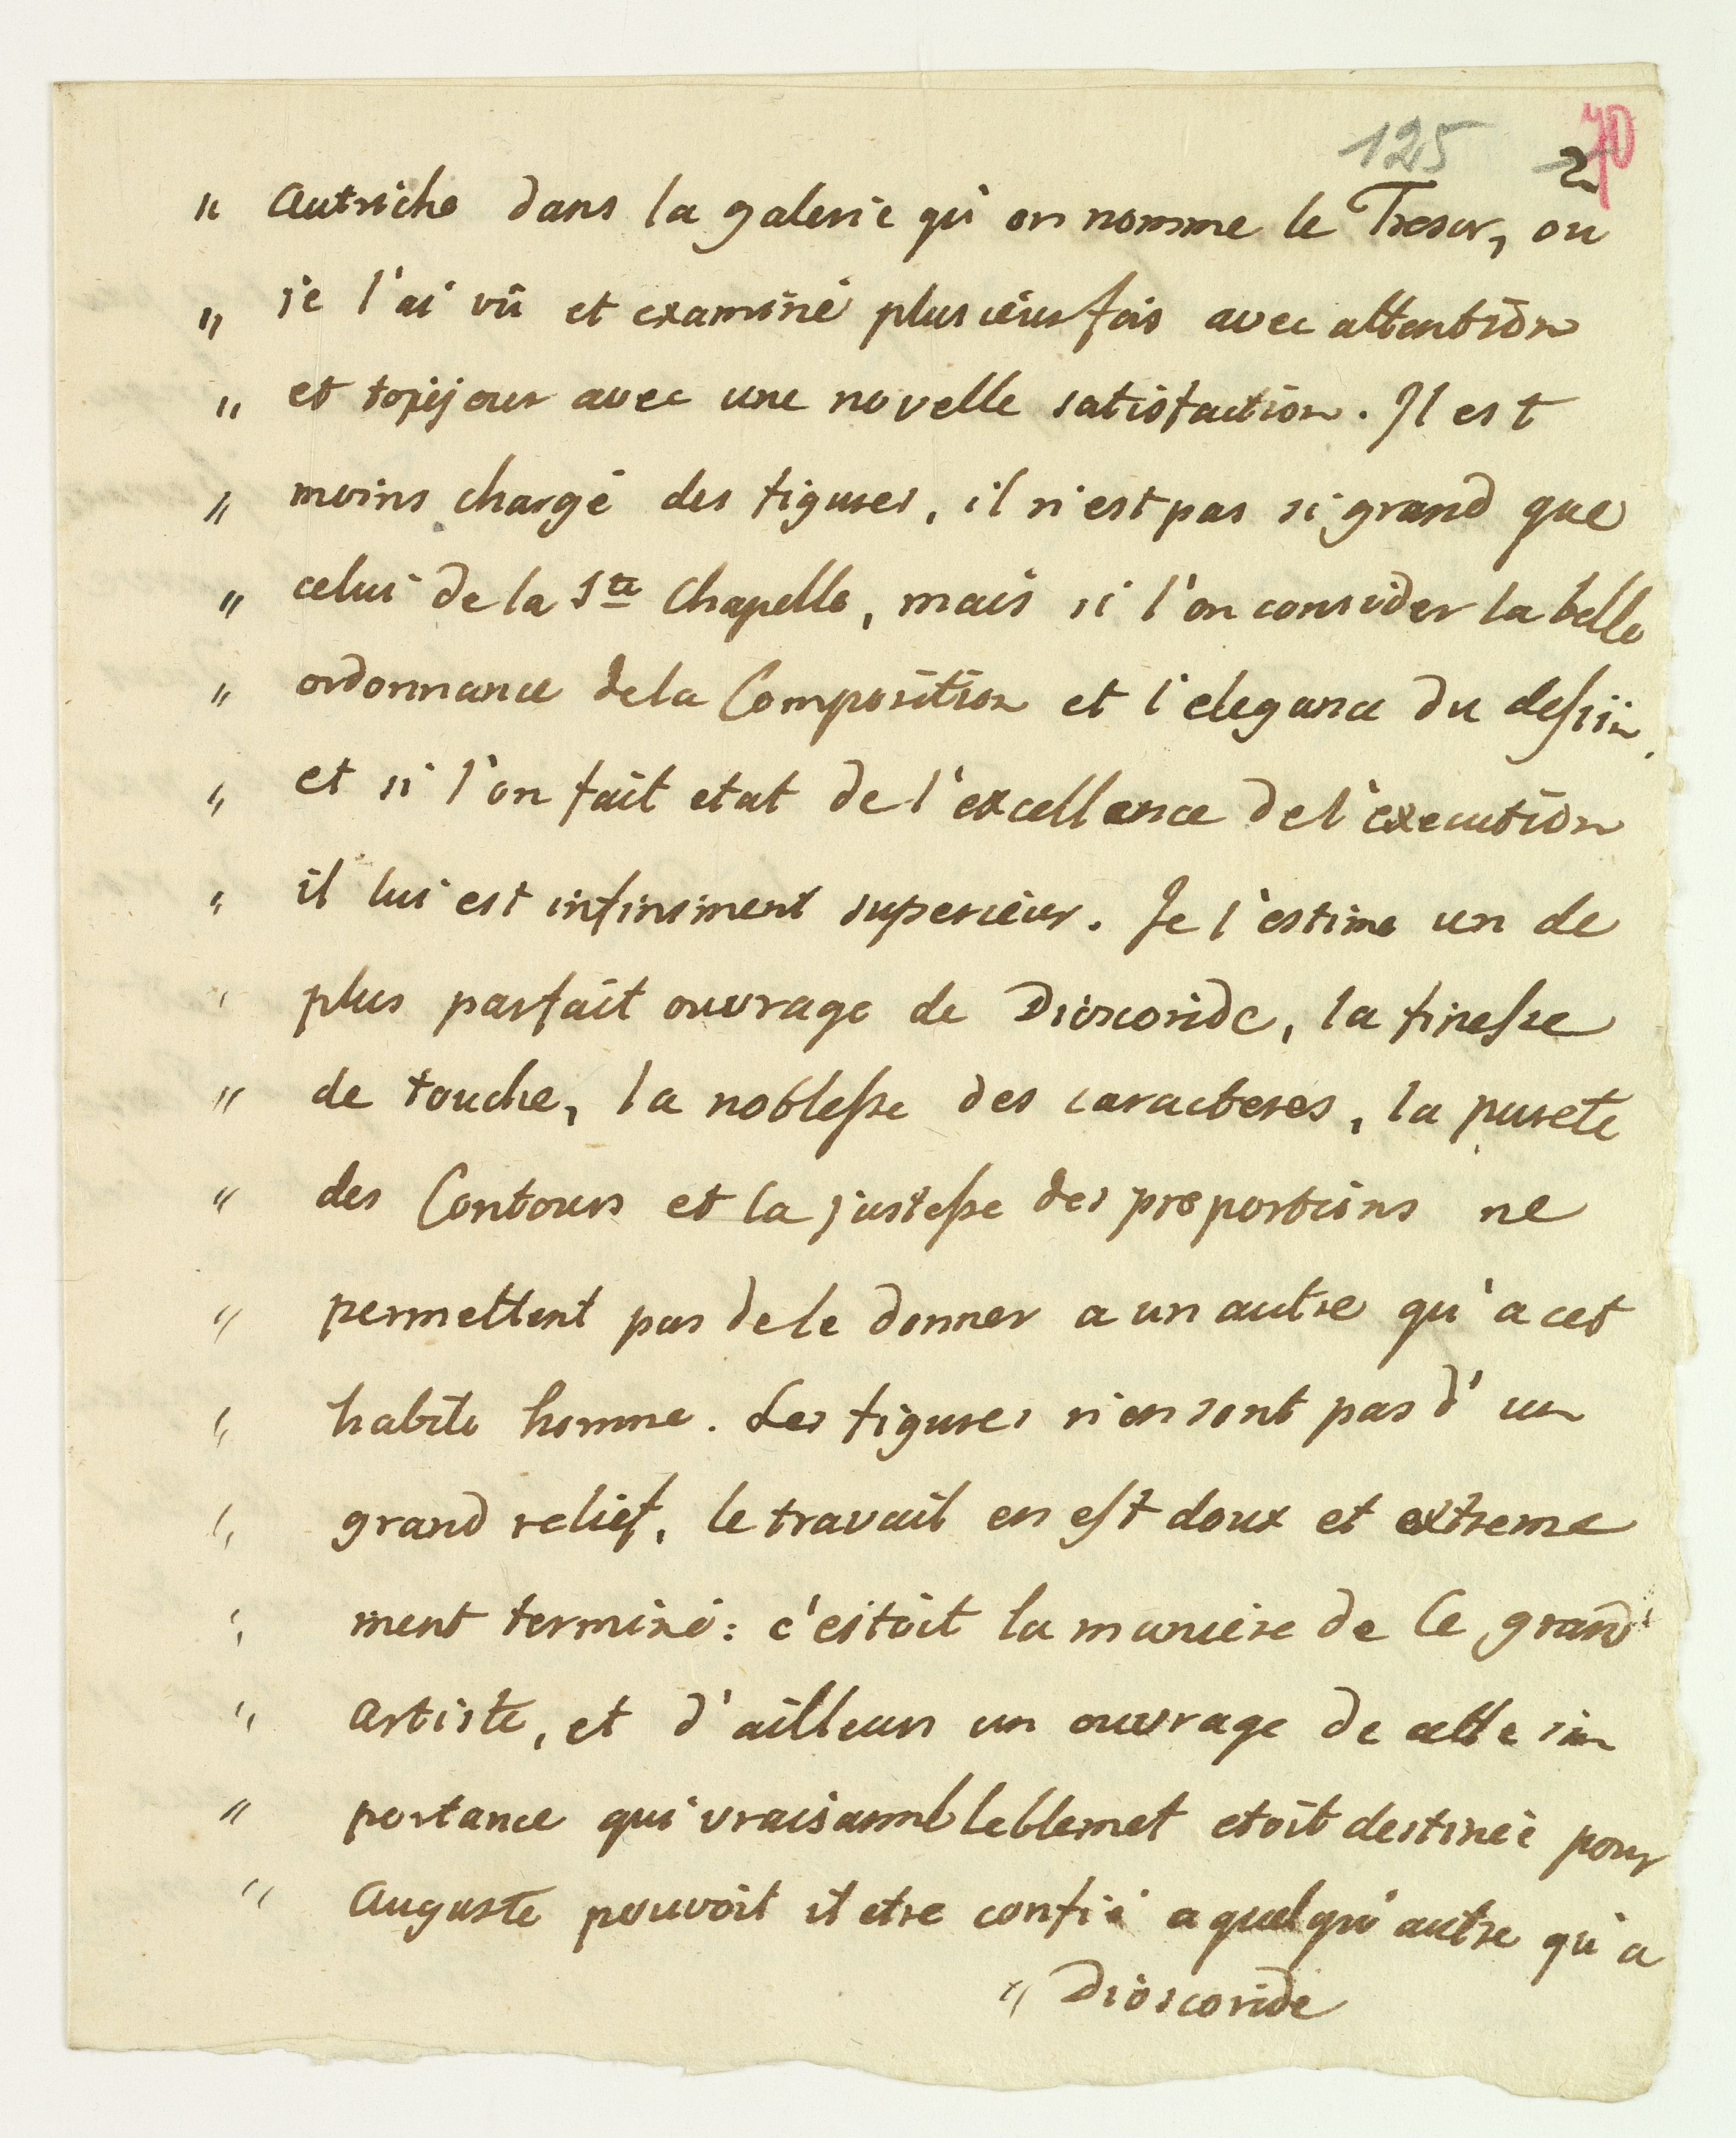 125 2 70
" Autriche dans la galerie qu'on nomme le Tresor, ou
" je l'ai vû et examiné plusieurs fois avec attention
" et toujour avec une novelle satisfaction. Il est
" moins chargé des figures, il n'est pas si grand que
" celui de la Ste Chapelle, mais si l'on consider la belle
" ordonnance de la Composition et l'elegance du dessiin,
" et si l'on fait etat de l'excellance de l'execution
" il lui est infiniment superieur. Je l'estime un de
" plus parfait ouvrage de Dioscoride, la finesse
" de touche, la noblesse des caracteres, la purete
" des Contours et la justesse des proportions ne
" permettent pas de le donner a un autre qu'a cet
" habile homme. Les figures n'en sont pas d'un
" grand relief, le travail en est doux et extreme
" ment terminé: c'estoit la maniere de Ce grand
" artiste, et d'ailleurs un ouvrage de cette im
" portance qui vraisambleblemet etoit destinée pour
" Auguste pouvoit il etre confié a quelqu'autre qu'a
" Dioscoride